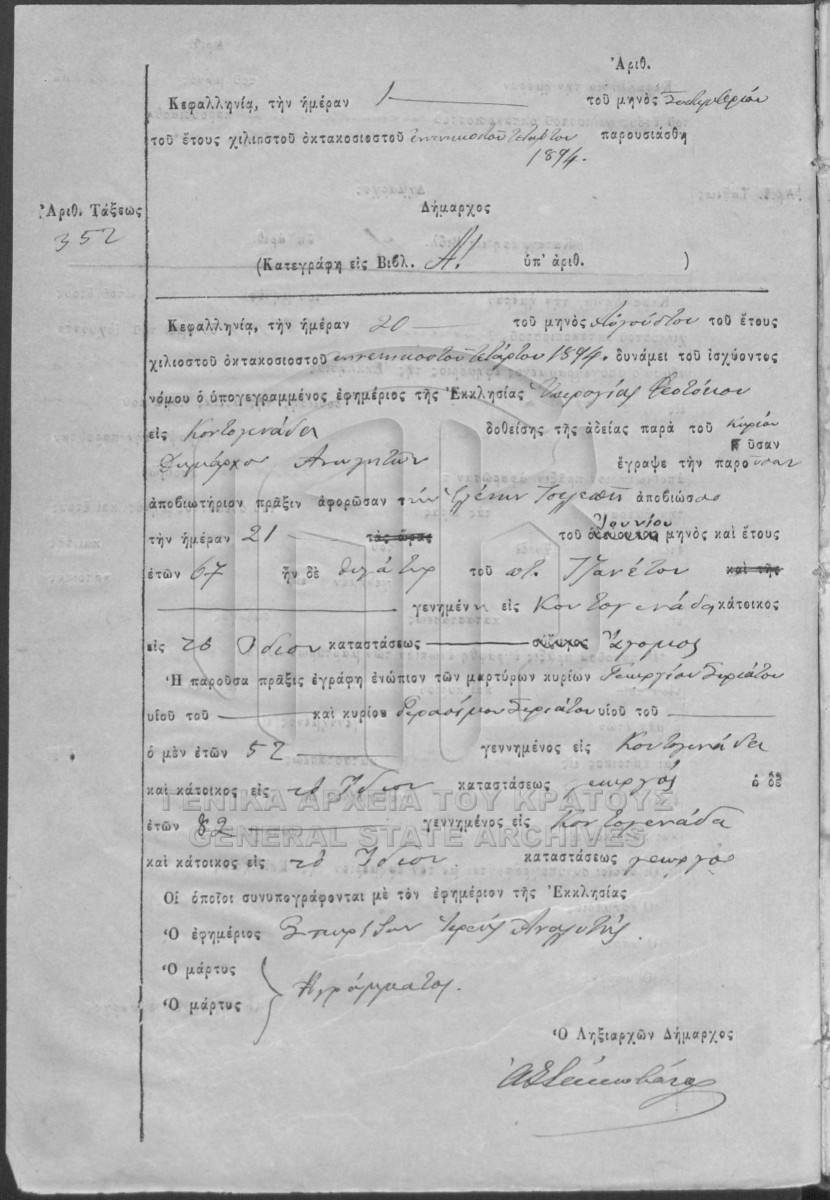 Ἀριθ.
Κεφαλληνίᾳ, τὴν ἡμέραν 1 τοῦ μηνὸς Σεπτεμβρίου
τοῦ ἔτους χιλιοστοῦ ὀκτακοσιοστοῦ ἐννενηκοστοῦ τετάρτου παρουσιάσθη
1894.
Ἀριθ. Τάξεως
352
Δήμαρχος
(Κατεγράφη εἰς Βιβλ. Α! ὑπ' ἀριθ. )
Κεφαλληνίᾳ, τὴν ἡμέραν 20 τοῦ μηνὸς Αὐγούστου τοῦ ἔτους
χιλιοστοῦ ὀκτακοσιοστοῦ ἐννενηκοστοῦ τετάρτου 1894. δυνάμει τοῦ ἰσχύοντος
νόμου ὁ ὑπογεγραμμένος ἐφημέριος τῆς Ἐκκλησίας Ὑπεραγίας Θεοτόκου
εἰς Κοντογενάδα δοθείσης τῆς ἀδείας παρὰ τοῦ κυρίου
Δημάρχου Ἀνωγητῶν ἔγραψε τὴν παροῦσαν
ἀποβιωτήριον πρᾶξιν ἀφορῶσαν τὴν Ἑλένην ἀποβιώσασ
τὴν ἡμέραν 21 τὰς ὥρας τοῦ Ἰουνίου μηνὸς καὶ ἔτους
ἐτῶν 67 ἦν δὲ θυγάτηρ τοῦ ποτ. Τζανέτου καὶ τῆς
γενημένη εἰς Κοντογενάδα κάτοικος
εἰς τὸ Ἴδιον καταστάσεως σύζυγος Ἄγαμος
Ἡ παροῦσα πρᾶξις ἐγράφη ἐνώπιον τῶν μαρτύρων κυρίων Γεωργίου
υἱοῦ τοῦ καὶ κυρίου Γερασίμου υἱοῦ τοῦ
ὁ μὲν ἐτῶν 52 γεννημένος εἰς Κοντογενάδα
καὶ κάτοικος εἰς τὸ Ἴδιον καταστάσεως γεωργός ὁ δὲ
ἐτῶν 82 γεννημένος εἰς Κοντογενάδα
καὶ κάτοικος εἰς τὸ Ἴδιον. καταστάσεως γεωργός
Οἱ ὁποῖοι συνυπογράφονται μὲ τὸν ἐφημέριον τῆς Ἐκκλησίας
Ὁ ἐφημέριος Σπυρίδων Ἱερεύς Ἀναλυτής
Ὁ μάρτυς
Ἀγράμματοι.
Ὁ μάρτυς
Ὁ Ληξιαρχῶν Δήμαρχος
ΓΕΝΙΚΑ ΑΡΧΕΙΑ ΤΟΥ ΚΡΑΤΟΥΣ
GENERAL STATE ARCHIVES